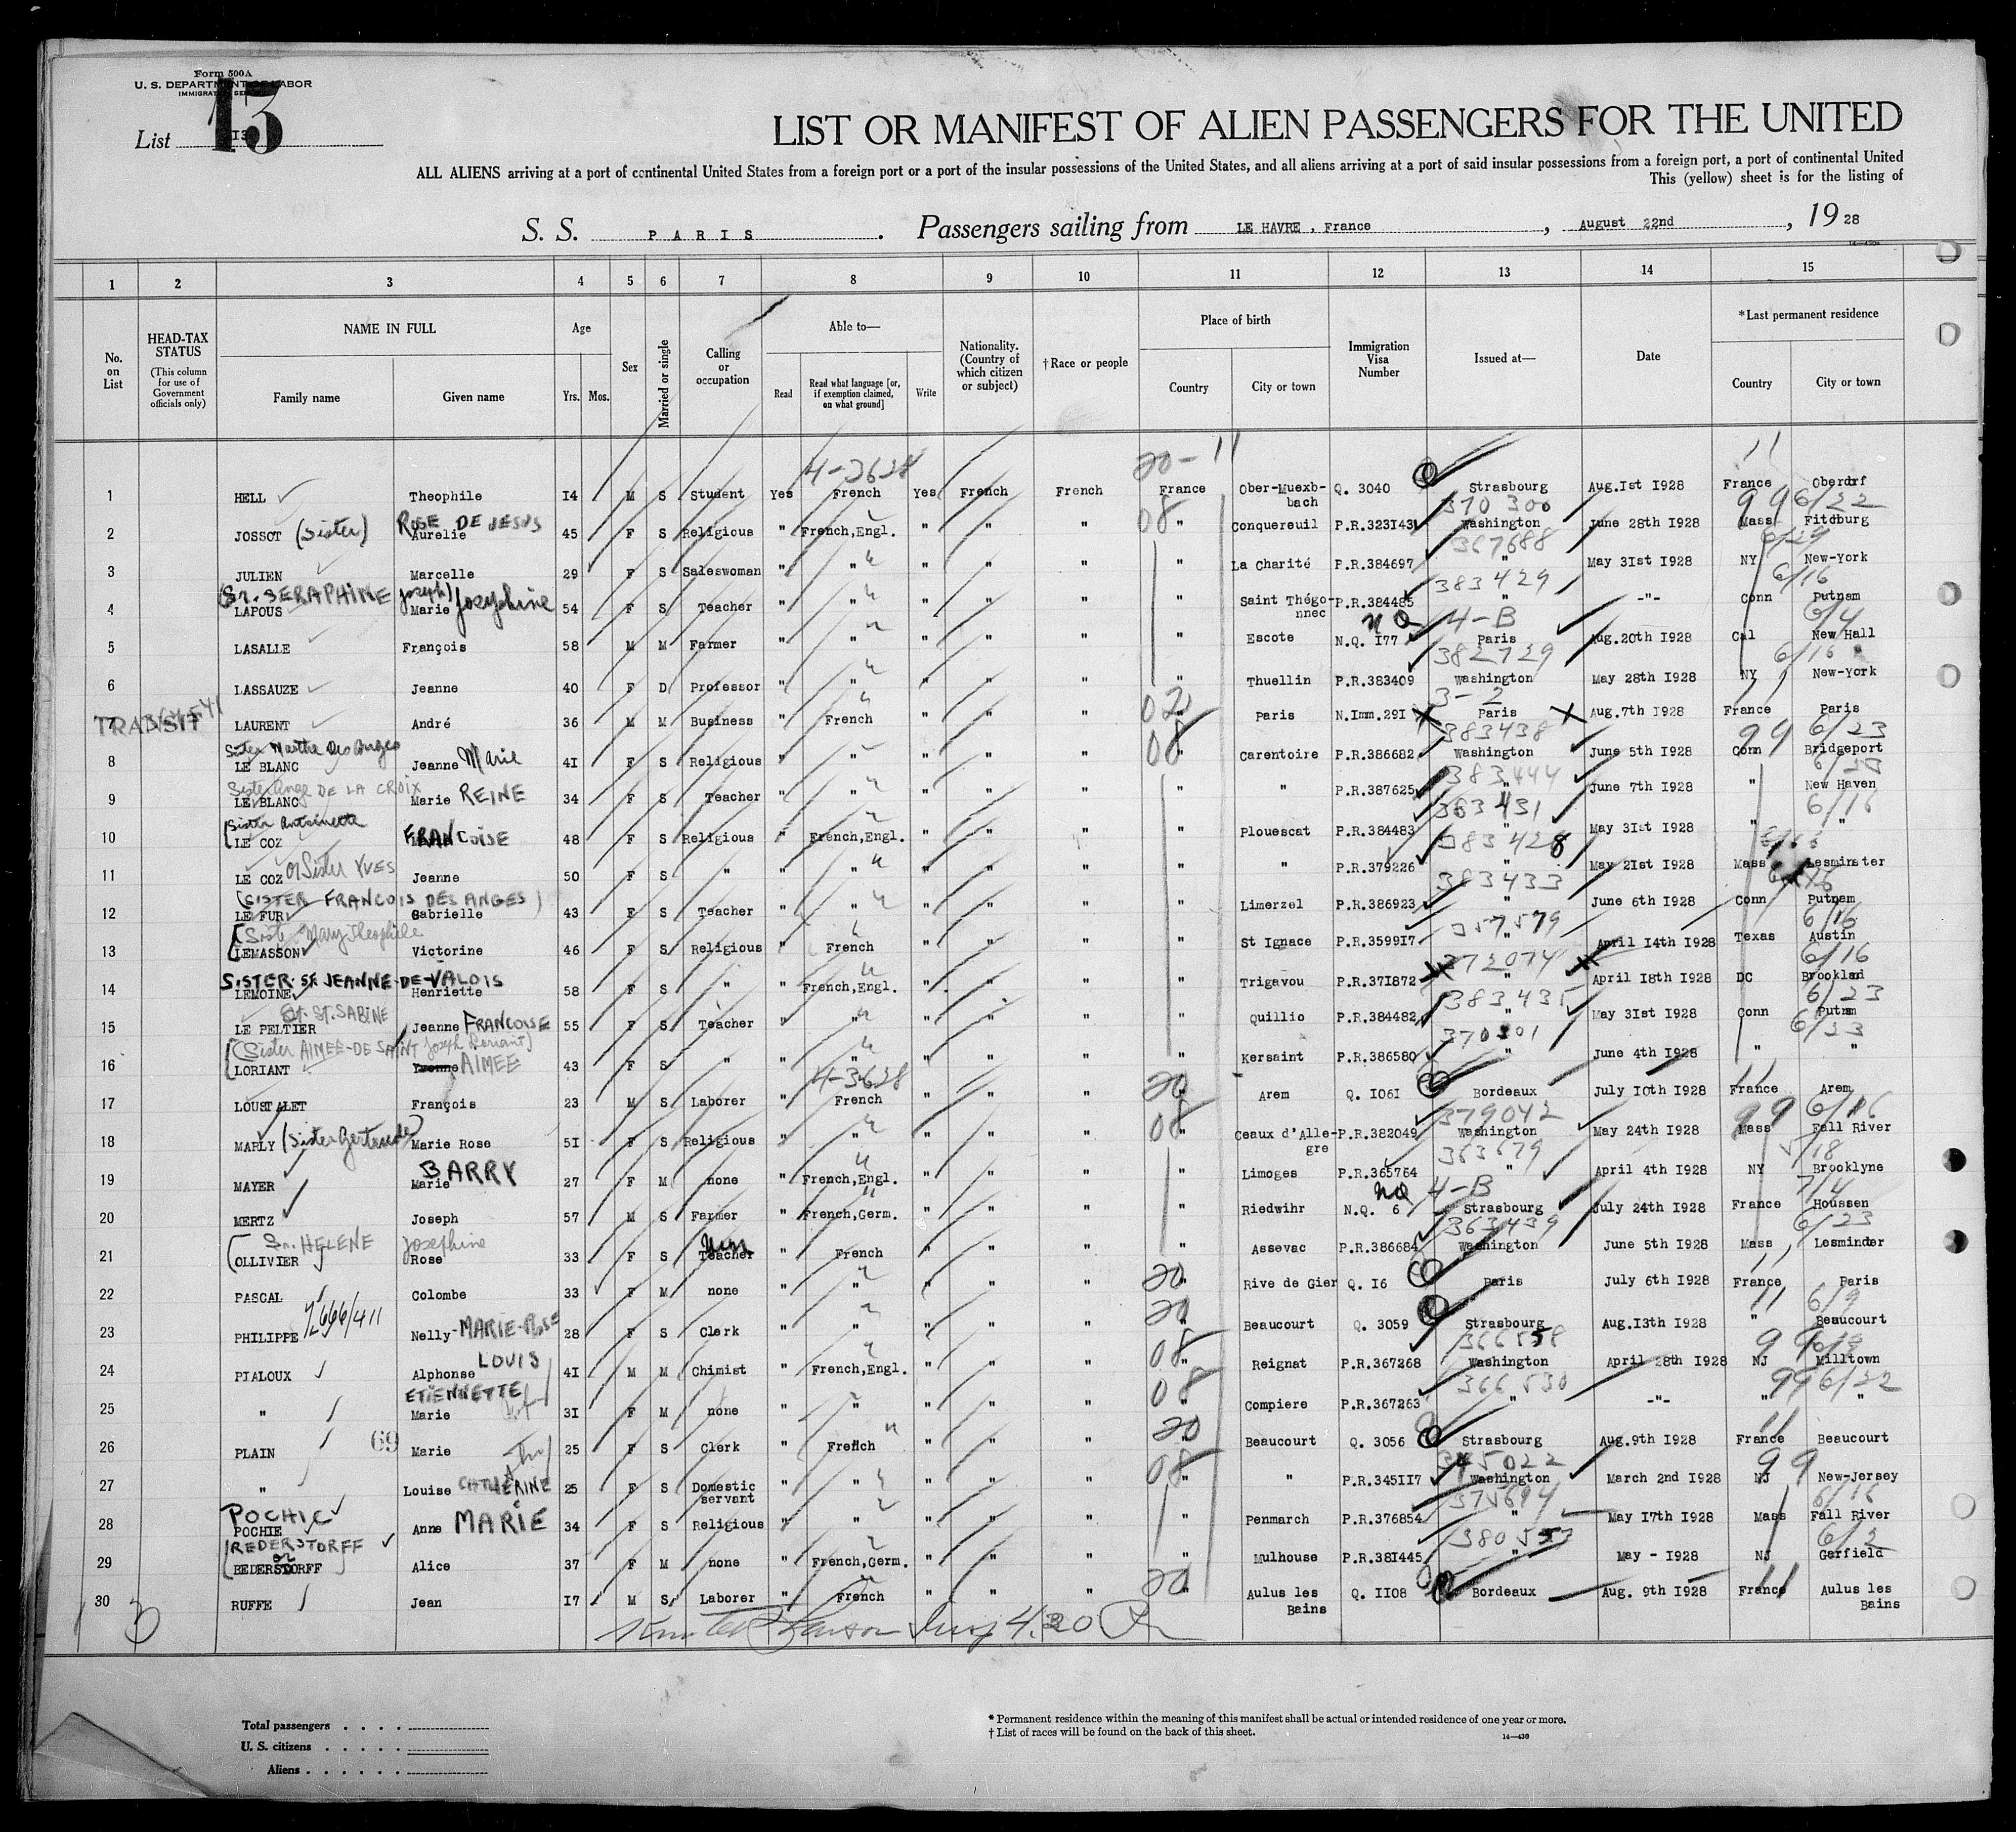 Form 500A
U. S. DEPARTMENT OF LABOR
IMMIGRATION SERVICE
List 13
LIST OR MANIFEST OF ALIEN PASSENGERS FOR THE UNITED
ALL ALIENS arriving at a port of continental United States from a foreign port or a port of the insular possessions of the United States, and all aliens arriving at a port of said insular possessions from a foreign port, a port of continental United
This (yellow) sheet is for the listing of
S. S. PARIS . Passengers sailing from LE HAVRE, France , August 22nd , 19 28
1 2 3 4 5 6 7 8 9 10 11 12 13 14 15
No. on List
HEAD-TAX STATUS (This column for use of Government officials only)
NAME IN FULL Family name Given name
Age Yrs. Mos.
Sex
Married or single
Calling or occupation
Able to— Read Read what language [or, if exemption claimed, on what ground] Write
Nationality. (Country of which citizen or subject)
†Race or people
Place of birth Country City or town
Immigration Visa Number
Issued at—
Date
*Last permanent residence Country City or town
4-3628 20-11 11
1 HELL Theophile 14 M S Student Yes French Yes French French France Ober-Muexb-bach Q. 3040 Strasbourg Aug.Ist I928 France Oberdrf
08 370 300 99 6/22
2 JOSSOT (Sister) ROSE DE JESUS Aurelie 45 F S Religious " French,Engl. " " " " Conquereuil P.R.323I43 Washington June 28th I928 Mass Fitdburg
367688 6/29
3 JULIEN Marcelle 29 F S Saleswoman " " " " " " La Charité P.R.384697 " May 3Ist I928 NY New-York
383429 6/16
4 (Sr. SERAPHINE Joseph) LAPOUS Marie Josephine 54 F S Teacher " " " " " " Saint Thégo-nnec P.R.384485 " -"- Conn Putnam
NQ 4-B 6/4
5 LASALLE François 58 M M Farmer " " " " " " Escote N.Q. I77 Paris Aug.20th I928 Cal New Hall
382729 6/16
6 LASSAUZE Jeanne 40 F D Professor " " " " " " Thuellin P.R.383409 Washington May 28th I928 NY New-York
02 3-2 11
7 TRANSIT LAURENT André 36 M M Business " French " " " " Paris N.Imm.29I Paris Aug.7th I928 France Paris
08 383438 99 6/23
8 Sister Marthe Des Anges LE BLANC Jeanne Marie 4I F S Religious " " " " " " Carentoire P.R.386682 Washington June 5th I928 Conn Bridgeport
383444
9 Sister Ange DE LA CROIX LE BLANC Marie REINE 34 F S Teacher " " " " " " " P.R.387625 " June 7th I928 " New Haven
383431 6/16
10 (Sister Antoinette LE COZ FRANCOISE 48 F S Religious " French,Engl. " " " " Plouescat P.R.384483 " May 3Ist I928 " "
383428
11 LE COZ or Sister YVES Jeanne 50 F S " " " " " " " " P.R.379226 " May 2Ist I928 Mass Lesminster
383433
12 (SISTER FRANCOIS DES ANGES) LE FUR Gabrielle 43 F S Teacher " " " " " " Limerzel P.R.386923 " June 6th I928 Conn Putnam
357579 6/16
13 (Sister Mary Theophile LEMASSON Victorine 46 F S Religious " French " " " " St Ignace P.R.3599I7 " April I4th I928 Texas Austin
372074 6/16
14 SISTER ST. JEANNE-DE-VALOIS LEMOINE Henriette 58 F S " " French,Engl. " " " " Trigavou P.R.37I872 " April I8th I928 DC Brooklad
383435 6/23
15 ST. SABINE LE PELTIER Jeanne FRANCOISE 55 F S Teacher " " " " " " Quillio P.R.384482 " May 3Ist I928 Conn Putnm
370301 6/23
16 (Sister AIMEE-DE SAINT Joseph Loriant) LORIANT Yvonne AIMEE 43 F S " " " " " " " Kersaint P.R.386580 " June 4th I928 " "
4-3628 20 11
17 LOUSTALET François 23 M S Laborer " French " " " " Arem Q. I06I Bordeaux July I0th I928 France Arem
08 379042 99 6/16
18 MARLY (Sister Gertrude) Marie Rose 5I F S Religious " " " " " " Ceaux d'Alle-gre P.R.382049 Washington May 24th I928 Mass Fall River
363679 5/18
19 MAYER Marie BARRY 27 F M none " French,Engl. " " " " Limoges P.R.365764 " April 4th I928 NY Brooklyne
NQ 4-B 7/4
20 MERTZ Joseph 57 M S Farmer " French,Germ. " " " " Riedwihr N.Q. 6 Strasbourg July 24th I928 France Houssen
363439 6/23
21 (Sr. HELENE OLLIVIER) Josephine Rose 33 F S Nun Teacher " French " " " " Assevac P.R.386684 Washington June 5th I928 Mass Lesminder
20 11
22 PASCAL Colombe 33 F M none " " " " " " Rive de Gier Q. I6 Paris July 6th I928 France Paris
20 11 6/9
23 PHILIPPE Nelly-MARIE-ROSE 28 F S Clerk " " " " " " Beaucourt Q. 3059 Strasbourg Aug.I3th I928 " Beaucourt
08 366558 99
24 PIALOUX Alphonse LOUIS 4I M M Chimist " French,Engl. " " " " Reignat P.R.367268 Washington April 28th I928 NJ Milltown
08 366530 99 6/22
25 " ETIENNETTE Marie 3I F M none " " " " " " Compiere P.R.367263 " -"- " "
20 11
26 PLAIN 69 Marie 25 F S Clerk " French " " " " Beaucourt Q. 3056 Strasbourg Aug.9th I928 France Beaucourt
08 345022 99
27 " Louise CATHERINE 25 F S Domestic servant " " " " " " " P.R.345II7 Washington March 2nd I928 NJ New-Jersey
375694 6/16
28 POCHIC POCHIE Anne MARIE 34 F S Religious " " " " " " Penmarch P.R.376854 " May I7th I928 Mass Fall River
380557 6/2
29 (REDERSTORFF or BEDERSTORFF) Alice 37 F M none " French,Germ. " " " " Mulhouse P.R.38I445 " May - I928 NJ Garfield
20 11
30 RUFFE Jean I7 M S Laborer " French " " " " Aulus les Bains Q. II08 Bordeaux Aug. 9th I928 France Aulus les Bains
Total passengers
U. S. citizens
Aliens
* Permanent residence within the meaning of this manifest shall be actual or intended residence of one year or more.
† List of races will be found on the back of this sheet.
14-430